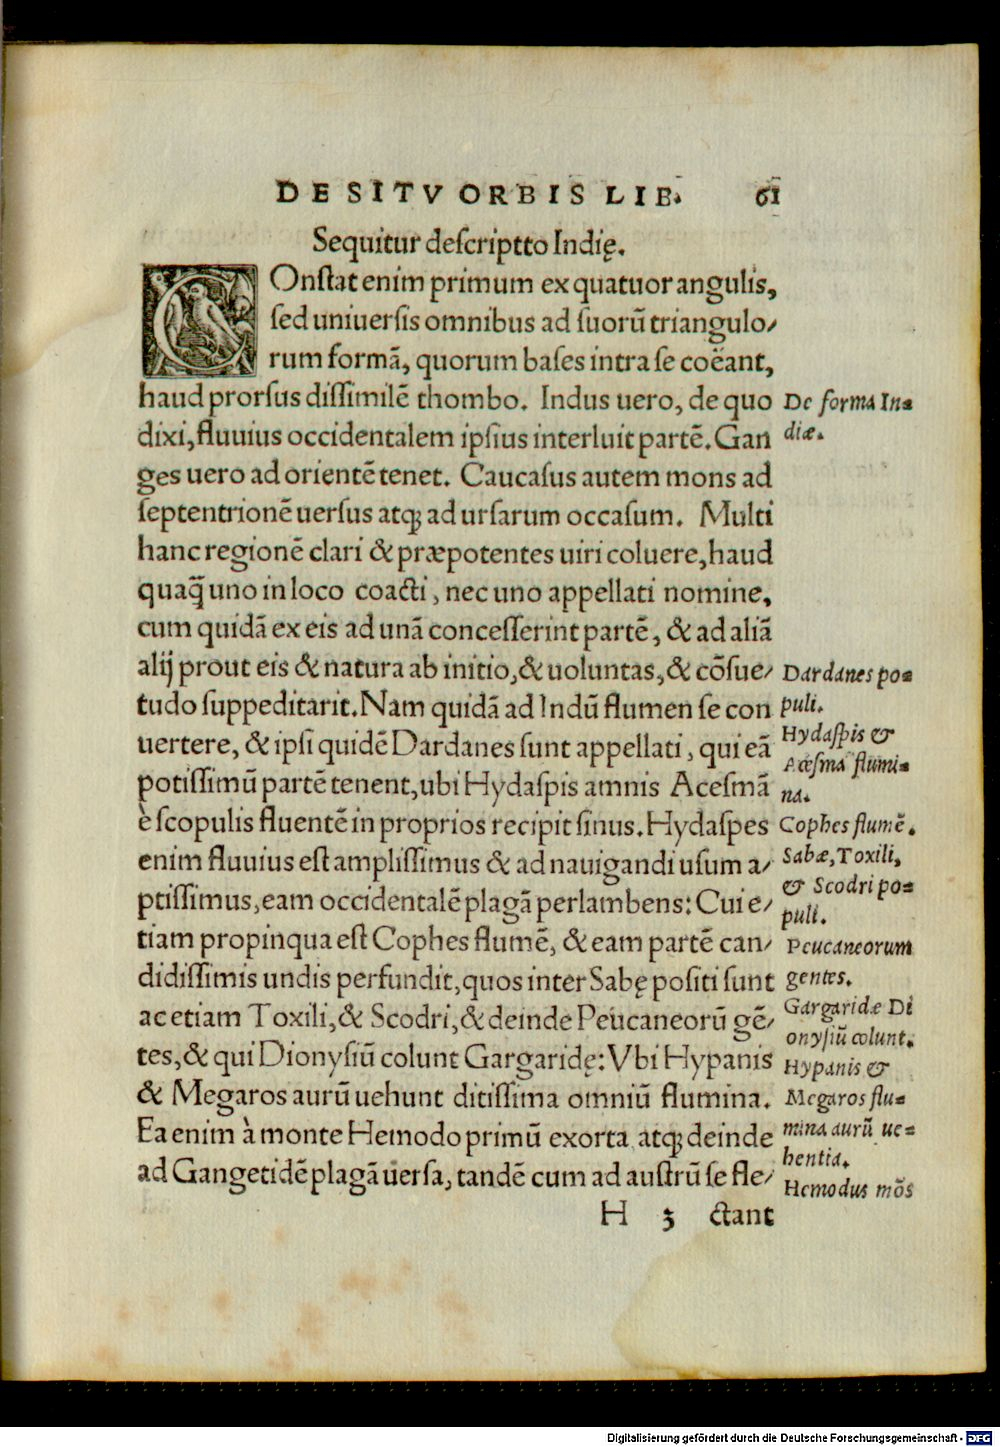 DE SITV ORBIS LIB. 61
Sequitur descriptto Indię.
COnſtat enim primum ex quatuor angulis,
ſed uniuerſis omnibus ad ſuorũ triangulo/
rum formã, quorum baſes intra ſe coëant,
haud prorſus diſſimilẽ thombo. Indus uero, de quo
dixi, fluuius occidentalem ipſius interluit partẽ. Gan
ges uero ad orientẽ tenet. Caucaſus autem mons ad
ſeptentrionẽ uerſus atq; ad urſarum occaſum. Multi
hanc regionẽ clari & præpotentes uiri coluere, haud
quaq̃ uno in loco coacti, nec uno appellati nomine,
cum quidã ex eis ad unã conceſſerint partẽ, & ad aliã
alij prout eis & natura ab initio, & uoluntas, & cõſue/
tudo ſuppeditarit. Nam quidã ad Indũ flumen ſe con
uertere, & ipſi quidẽ Dardanes ſunt appellati, qui eã
potiſſimũ partẽ tenent, ubi Hydaſpis amnis Aceſmã
è ſcopulis fluentẽ in proprios recipit ſinus. Hydaſpes
enim fluuius eſt ampliſſimus & ad nauigandi uſum a/
ptiſſimus, eam occidentalẽ plagã perlambens: Cui e/
tiam propinqua eſt Cophes flumẽ, & eam partẽ can/
didiſſimis undis perfundit, quos inter Sabę poſiti ſunt
ac etiam Toxili, & Scodri, & deinde Peucaneorũ gẽ/
tes, & qui Dionyſiũ colunt Gargaridę: Vbi Hypanis
& Megaros aurũ uehunt ditiſſima omniũ flumina.
Ea enim à monte Hemodo primũ exorta atq; deinde
ad Gangetidẽ plagã uerſa, tandẽ cum ad auſtrũ ſe fle/
H 3 ctant
De forma In=
diæ.
Dardanes po=
puli.
Hydaſpis &
Aceſma flumi=
na.
Cophes flumẽ.
Sabæ, Toxili,
& Scodri po=
puli.
Peucaneorum
gentes.
Gargaridæ Di
onyſiũ colunt.
Hypanis &
Megaros flu=
mina aurũ ue=
hentia.
Hemodus mõs
Digitalisierung gefördert durch die Deutsche Forschungsgemeinschaft - DFG